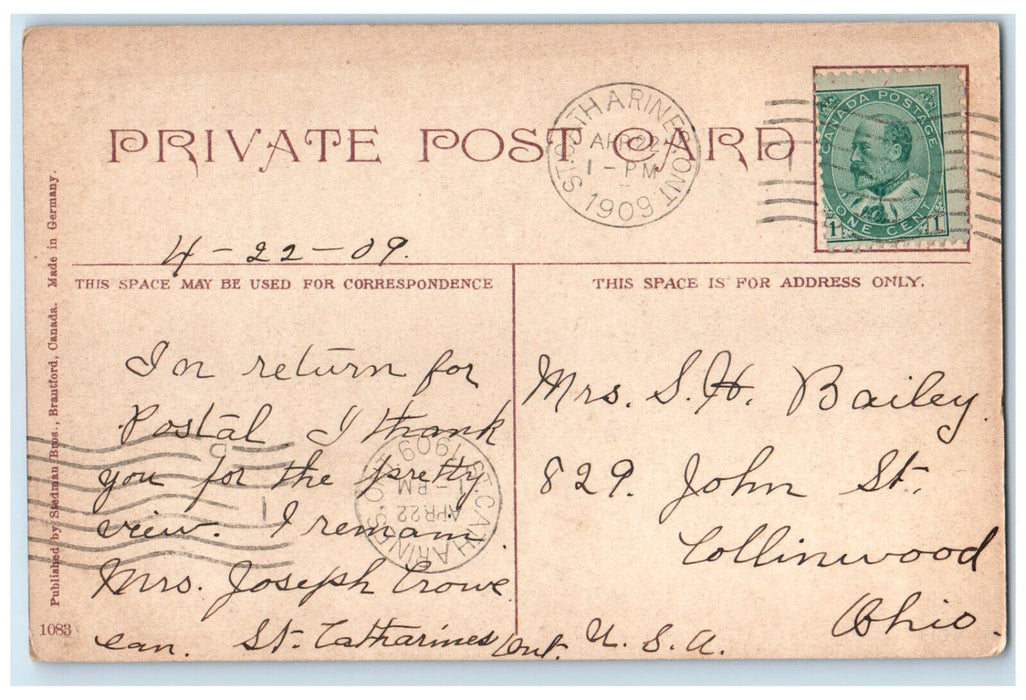 PRIVATE POST CARD
ST. CATHARINES ONT
APR 22
1 - PM
1909
CANADA POSTAGE
ONE CENT
1 1
4-22-09.
THIS SPACE MAY BE USED FOR CORRESPONDENCE
THIS SPACE IS FOR ADDRESS ONLY.
In return for
Postal I thank
you for the pretty
view. I remain.
Mrs. Joseph Crowe
can. St. Catharines Ont.
Mrs. S. H. Bailey.
829. John St.
Collinwood
Ohio.
U. S. A.
ST. CATHARINES ONT
APR 22
1 - PM
1909
Published by Stedman Bros., Brantford, Canada. Made in Germany.
1083